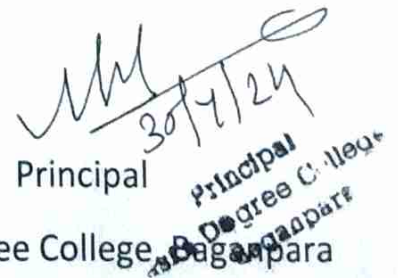 30/7/24
Principal
Principal
Degree College
Baganpara
ee College, Baganpara